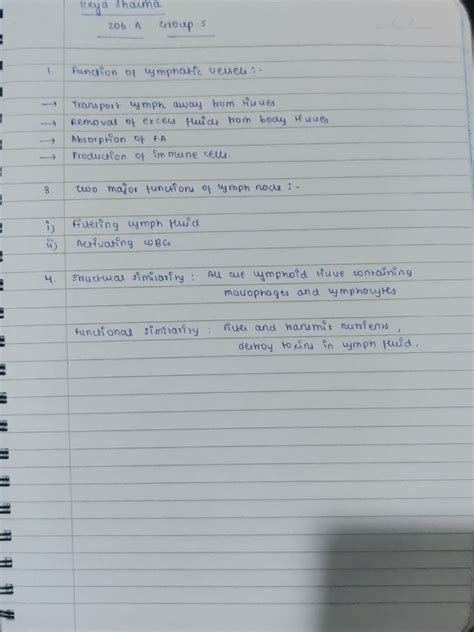 Keya Sharma
206-A Group-5
1. Function of lymphatic vessels :-
→ Transport lymph away from tissues
→ Removal of excess fluids from body tissues
→ Absorption of FA
→ Production of immune cells.
3. Two major functions of lymph node :-
i) Filtering lymph fluid
ii) Activating WBCs
4. Structural similarity : All are lymphoid tissue containing
macrophages and lymphocytes
Functional similarity : Filter and transmit nutrients,
destroy toxins in lymph fluid.